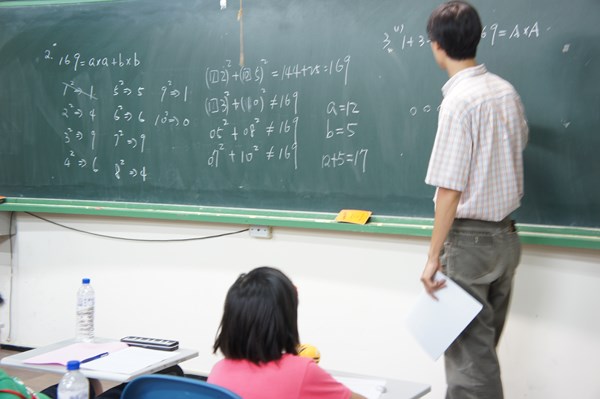 2° 169=a×a+b×b
1²→1 5²→5 9²→1
2²→4 6²→6 10²→0
3²→9 7²→9
4²→6 8²→4
(12)²+(05)²=144+25=169
(□3)²+(10)²≠169
05²+08²≠169
07²+10²≠169
a=12
b=5
12+5=17
1+3 69=A×A